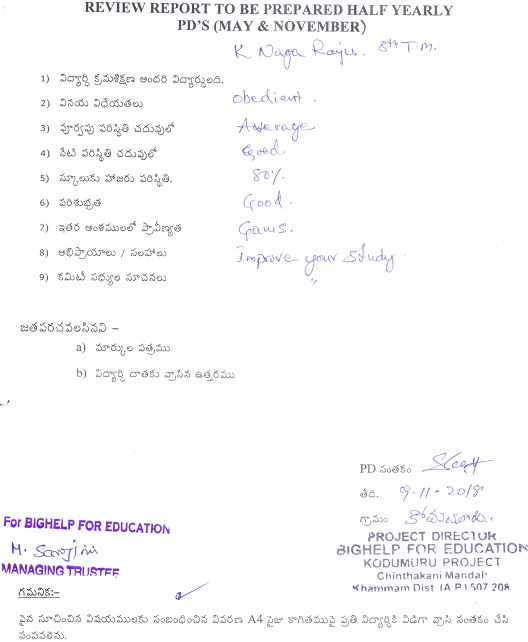 REVIEW REPORT TO BE PREPARED HALF YEARLY
PD'S (MAY & NOVEMBER)
K. Naga Raju. 8th T.M.
1) విద్యార్థి క్రమశిక్షణ అందరి విద్యార్థులది.
2) వినయ విధేయతలు obedient.
3) పూర్వపు పరిస్థితి చదువులో Average
4) నేటి పరిస్థితి చదువులో Good
5) స్కూలుకు హాజరు పరిస్థితి. 80%
6) పరిశుభ్రత Good.
7) ఇతర అంశములలో ప్రావీణ్యత Gams.
8) అభిప్రాయాలు / సలహాలు Improve your study.
9) కమిటీ సభ్యుల సూచనలు "
జతపరచవలసినవి –
a) మార్కుల పత్రము
b) విద్యార్థి దాతకు వ్రాసిన ఉత్తరము
PD సంతకం
తేది. 09-11-2018
గ్రామం కోదుమూరు.
PROJECT DIRECTOR
BIGHELP FOR EDUCATION
KODUMURU PROJECT
Chinthakani Mandal:
Khammam Dist (A.P.) 507 208
For BIGHELP FOR EDUCATION
M. Sarojini
MANAGING TRUSTEE
గమనిక:-
పైన సూచించిన విషయములకు సంబంధించిన వివరణ A4 సైజు కాగితముపై ప్రతి విద్యార్థికి విడిగా వ్రాసి సంతకం చేసి
పంపవలెను.